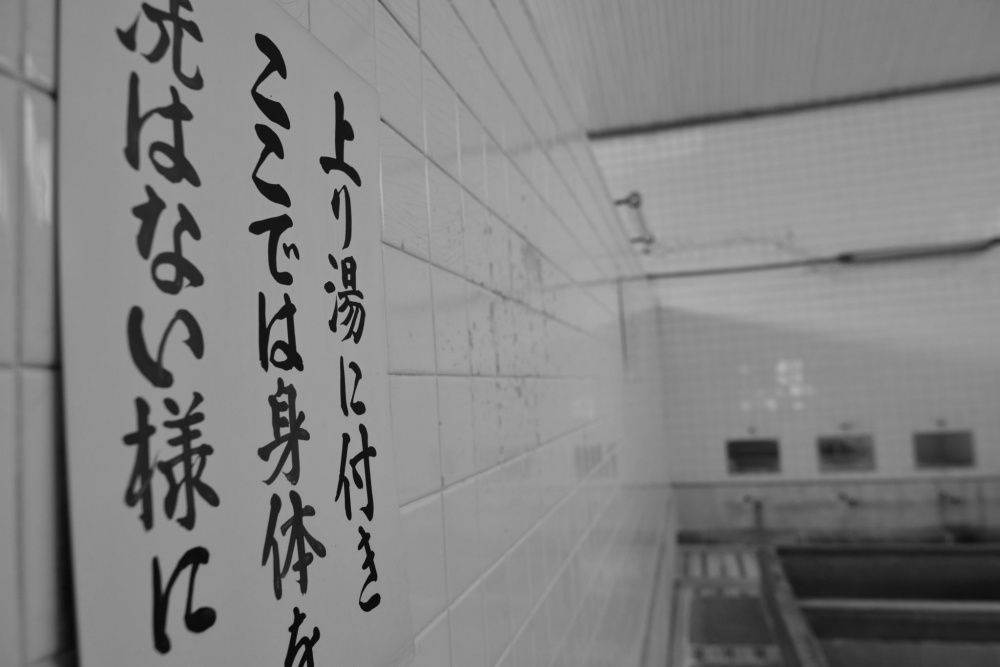 上り湯に付き
ここでは身体を
洗はない様に